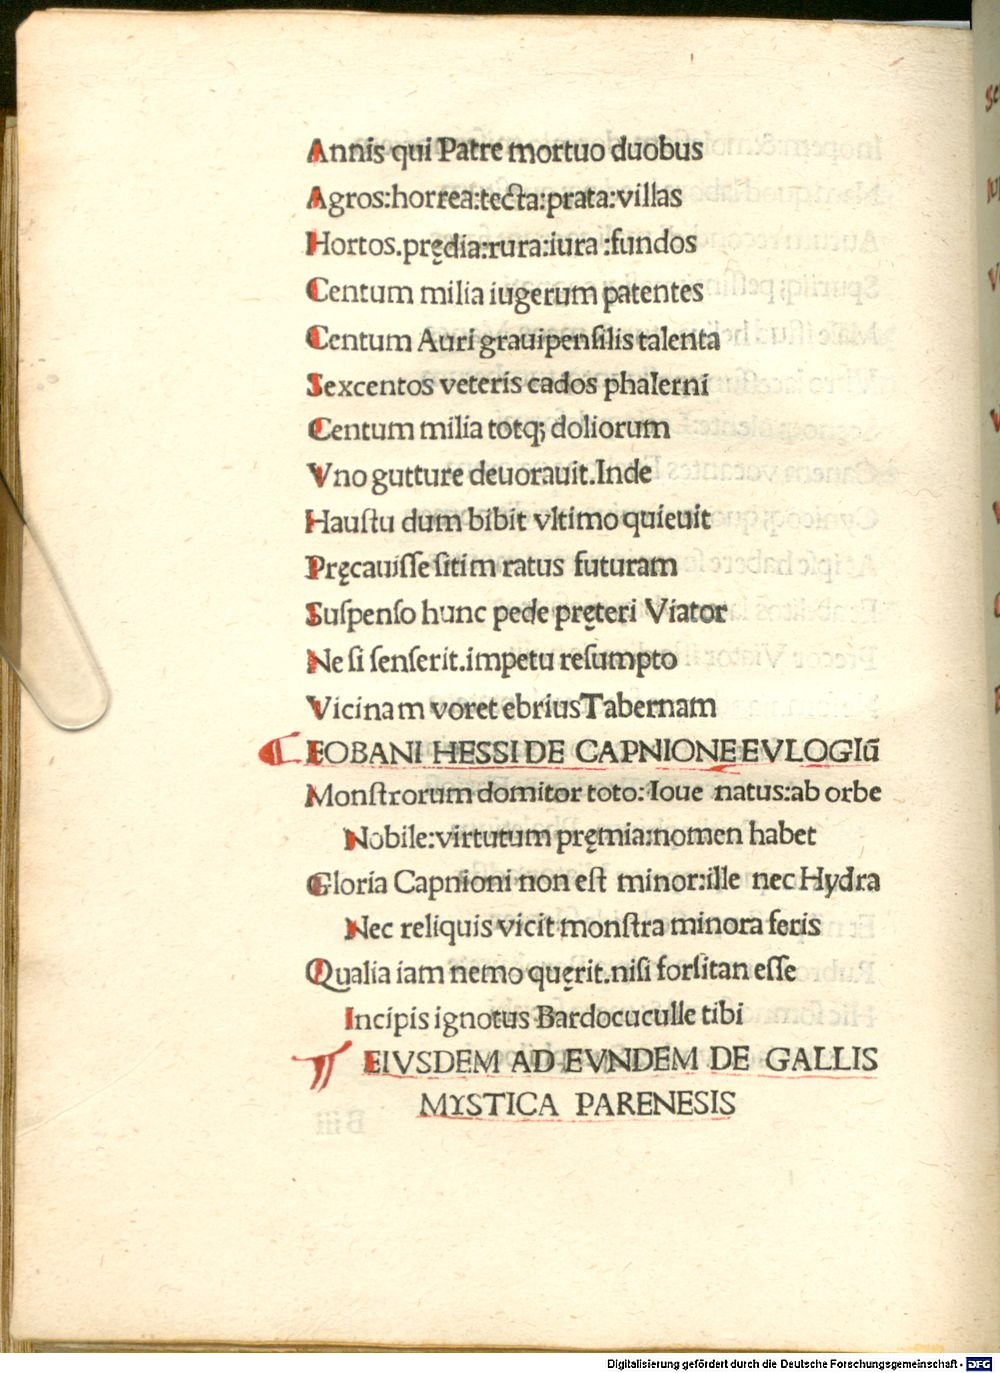 Annis qui Patre mortuo duobus
Agros:horrea:tecta:prata:villas
Hortos.prędia:rura:iura :fundos
Centum milia iugerum patentes
Centum Auri grauipenſilis talenta
Sexcentos veteris cados phalerni
Centum milia totq; doliorum
Vno gutture deuorauit.Inde
Hauſtu dum bibit vltimo quieuit
Pręcauiſſe ſitim ratus futuram
Suſpenſo hunc pede pręteri Viator
Ne ſi ſenſerit.impetu reſumpto
Vicinam voret ebrius Tabernam
EOBANI HESSI DE CAPNIONE EVLOGIū
Monſtrorum domitor toto:Ioue natus:ab orbe
Nobile:virtutum pręmia:nomen habet
Gloria Capnioni non eſt minor:ille nec Hydra
Nec reliquis vicit monſtra minora feris
Qualia iam nemo quęrit.niſi forſitan eſſe
Incipis ignotus Bardocuculle tibi
¶ EIVSDEM AD EVNDEM DE GALLIS
MYSTICA PARENESIS
Digitalisierung gefördert durch die Deutsche Forschungsgemeinschaft - DFG